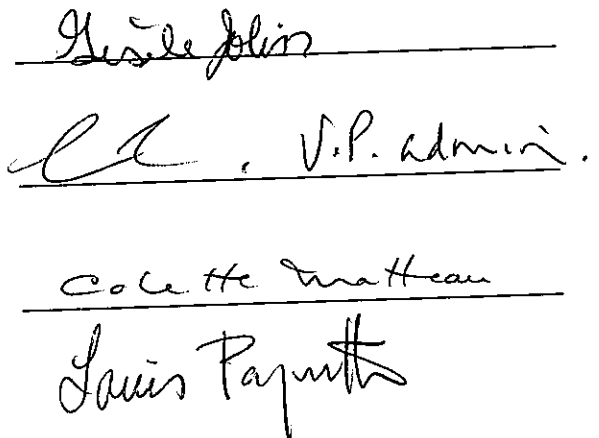 Gisèle Jolin
V.P. admin.
Colette Matteau
Louis